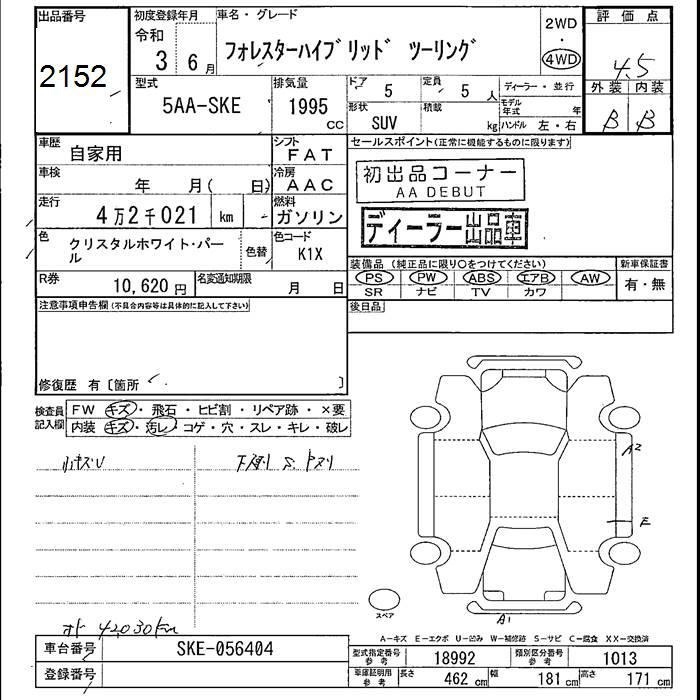 出品番号
2152
初度登録年月
令和
3 6月
車名・グレード
フォレスターハイブリッド ツーリング
2WD
・
4WD
評価点
4.5
外装 内装
B B
型式
5AA-SKE
排気量
1995
CC
ドア
5
定員
5 人
形状
SUV
積載
kg
ディーラー・並行
モデル年式 年
ハンドル 左・右
車歴
自家用
シフト
FAT
車検
年 月( 日)
冷房
AAC
走行
4万2千021 km
燃料
ガソリン
色
クリスタルホワイト・パール
色替
色コード
K1X
R券
10,620円
名変通知期限
月 日
セールスポイント(正常に機能するものに限ります)
初出品コーナー
AA DEBUT
ディーラー出品車
装備品 (純正品に限り○をつけてください)
PS PW ABS エアB AW
SR ナビ TV カワ
新車保証書
有・無
後日品
注意事項申告欄(不具合内容等は具体的に記入して下さい)
修復歴 有〔箇所 〕
検査員記入欄
FW キズ・飛石・ヒビ割・リペア跡・×要
内装 キズ・汚レ・コゲ・穴・スレ・キレ・破レ
小キズU
下廻り S
A2
E
A1
スペア
オド 42030km
A-キズ E-エクボ U-凹み W-補修跡 S-サビ C-腐食 XX-交換済
車台番号
SKE-056404
登録番号
型式指定番号 参考
18992
類別区分番号 参考
1013
車庫証明用 参考
長さ 462 cm
幅 181 cm
高さ 171 cm